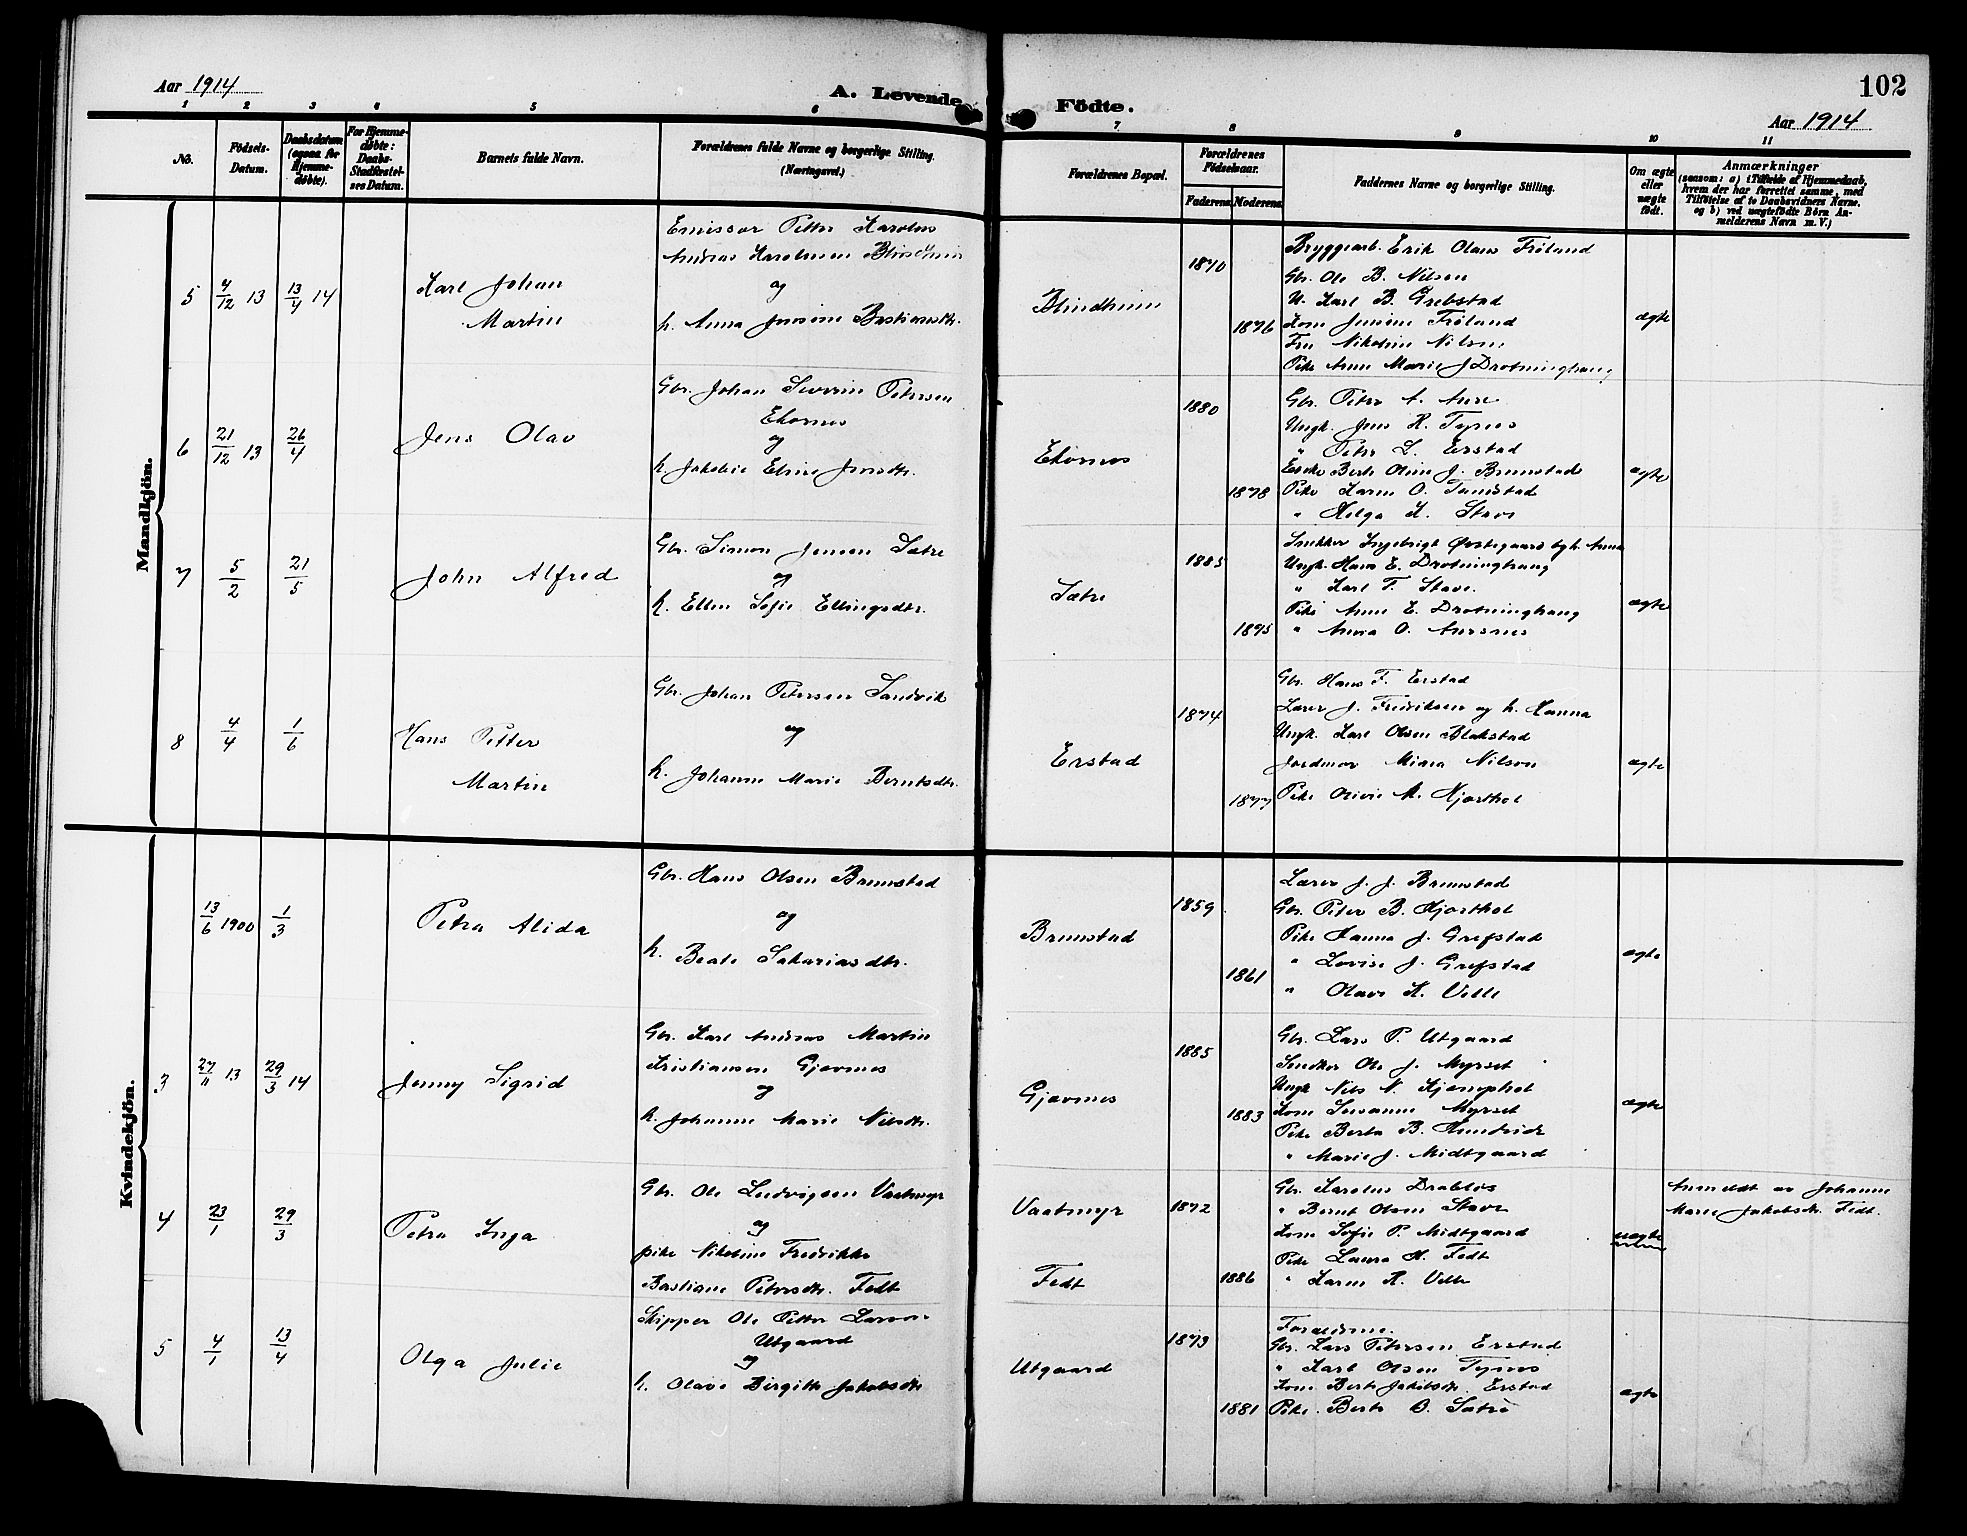 102
Aar 1914
A. Levende Födte.
Aar 1914
1 2 3 4 5 6 7 8 9 10 11
No.
Födsels-Datum.
Daabsdatum (ogsaa for Hjemme-döbte).
For Hjemme-döbte: Daabs-Stadfæstel-ses Datum.
Barnets fulde Navn.
Forældrenes fulde Navne og borgerlige Stilling.
(Næringsvei.)
Forældrenes Bopæl.
Forældrenes Födselsaar.
Faderens. Moderens.
Faddernes Navne og borgerlige Stilling.
Om ægte eller uægte født.
Anmærkninger
(saasom: a) i Tilfælde af Hjemmedaab, hvem der har forrettet samme, med Tilföielse af to Daabsvidners Navne. og b) ved uægtefödte Börn An-melderens Navn m. V.)
Mandkjön.
5
4/12 13
13/4 14
Karl Johan
Martin
Emissær Petter Karolus
Andreas Karolussen Blindheim
og
h. Anna Jensine Bastiansdtr.
Blindheim
1870
1876
Bryggearb. Erik Olaus Frøland
Gbr. Ole B. Nilsen
U. Karl B. Grebstad
Kone Jensine Frøland
Fru Nikoline Nilsen
Pike Anne Marie J Drotninghaug
ægte
6
21/12 13
26/4
Jens Olav
Gbr. Johan Severin Petersen
Ekornes
og
h. Jakobie Elise Jensdtr.
Ekornes
1880
1878
Gbr. Peter A. Aure
Ungk. Jens R. Tynes
" Peter L. Erstad
Enke Berte Oline J. Brunstad
Pike Karen O. Tandstad
" Helga K. Stave
ægte
7
5/2
21/5
John Alfred
Gbr. Simon Jensen Sætre
og
h. Ellen Sofie Ellingsdtr.
Sætre
1885
1875
Snekker IngebrigtØrstegaard og h. Anna
Ungk. Hans E. Drotninghaug
" Karl F. Stave.
Pike Anne E. Drotninghaug
" Anna O. Aursnes
ægte
8
4/4
1/6
Hans Petter
Martin
Gbr. Johan Petersen Sandvik
og
h. Johanne Marie Berntsdtr.
Erstad
1874
1877
Gbr. Hans F. Erstad
Lærer J. Fredriksen og h. Hanna
Ungk. Karl Olsen Blakstad
Jordmor Mina Nilsen
Pike Olivie M. Hjorthol
ægte
Kvindekjön.
13/6 1900
1/3
Petra Alida
Gbr. Hans Olsen Brunstad
og
h. Beate Sakariasdtr.
Brunstad
1859
1861
Lærer J. J. Brunstad
Gbr. Peter B. Hjorthol
Pike Hanna J. Grefstad
" Lovise J. Grefstad
" Olave K. Velle
ægte
3
27/11 13
29/3 14
Jenny Sigrid
Gbr. Karl Andreas Martin
Kristiansen Gjævnes
og
h. Johanne Marie Nilsdtr.
Gjævnes
1885
1883
Gbr. Lars P. Utgaard
Snedker Ole J. Myrset
Ungk Nils N. Kjemphol
Kone Susanne Myrset
Pike Berta B. Hundeide
" Marie J. Midtgaard
ægte
4
23/1
29/3
Petra Inga
Gbr. Ole Ludvigsen Vaatmyr
og
pike Nikoline Fredrikke
Bastiane Petersdtr. Fedt
Vaatmyr
Fedt
1872
1886
Gbr. Karolus Drabløs
" Bernt Olsen Stave
Kone Sofie P. Midtgaard
Pike Laura H. Fedt
" Karen K. Velle
uægte
Anmeldt av Johanne
Marie Jakobsdtr. Fedt.
5
4/1
13/4
Olga Julie
Skipper Ole Petter Larsen
Utgaard
og
h. Olave Birgitte Jakobsdtr
Utgaard
1873
1881
Forældrene.
Gbr. Lars Petersen Erstad
" Karl Olsen Tynes
Kone Berte Jakobsdtr. Erstad
Pike Berte O. Sætre
ægte